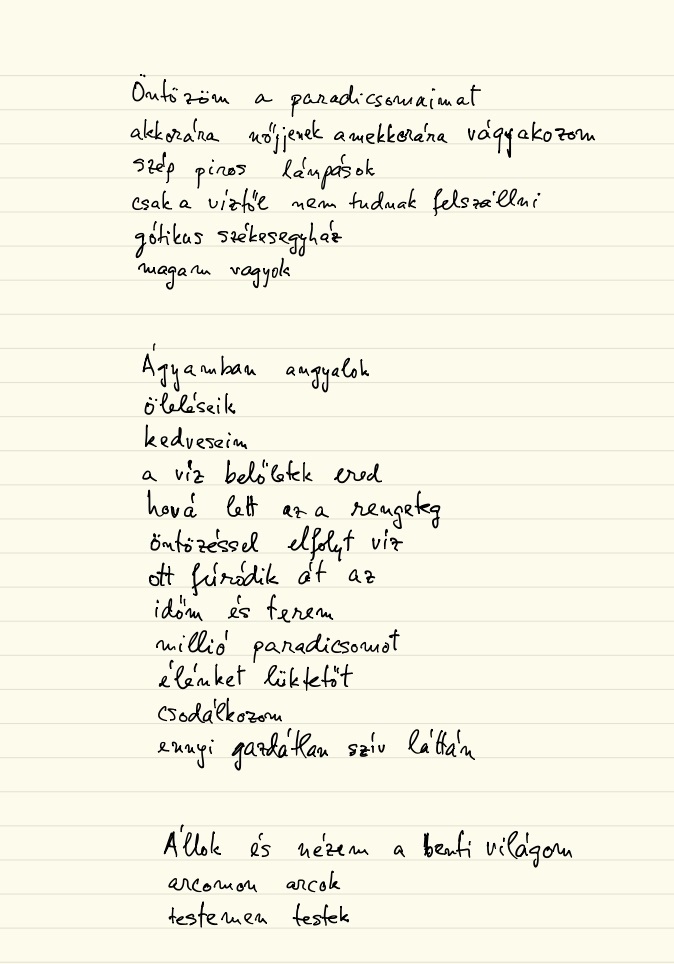 Öntözöm a paradicsomaimat
akkorára nőjjenek amekkorára vágyakozom
szép piros lámpások
csak a víztől nem tudnak felszállni
gótikus székesegyház
magam vagyok
Ágyamban angyalok
öleléseik
kedveseim
a víz belőletek ered
hová lett az a rengeteg
öntözéssel elfolyt víz
ott fúródik át az
időm és terem
millió paradicsomot
élénket lüktetőt
csodálkozom
ennyi gazdátlan szív láttán
Állok és nézem a benti világom
arcomon arcok
testemen testek